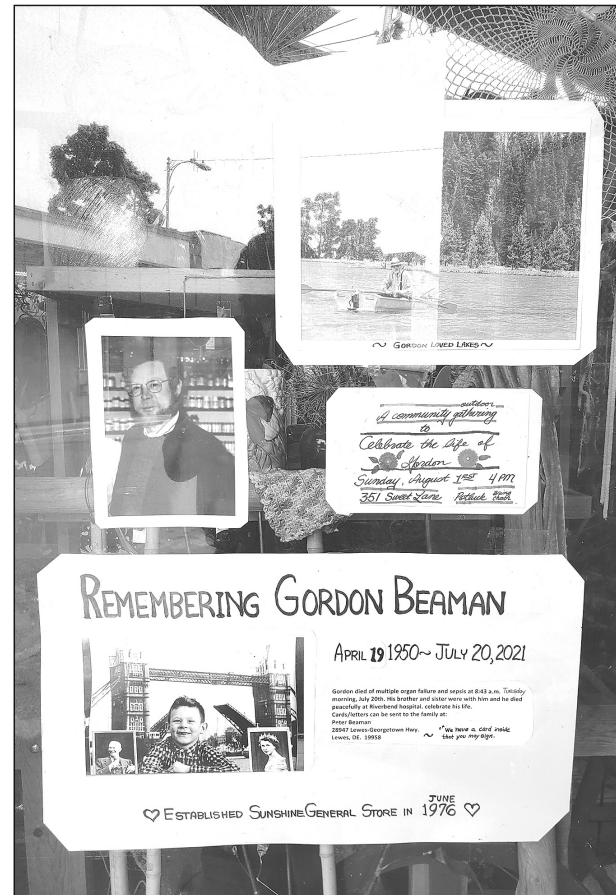 ~ GORDON LOVED LAKES ~
outdoor
A community gathering
to
Celebrate the life of
Gordon
Sunday, August 1ST 4 PM
351 Sweet Lane Potluck Bring chair
REMEMBERING GORDON BEAMAN
APRIL 19 1950 ~ JULY 20, 2021
Gordon died of multiple organ failure and sepsis at 8:43 a.m. Tuesday
morning, July 20th. His brother and sister were with him and he died
peacefully at Riverbend hospital. celebrate his life.
Cards/letters can be sent to the family at:
Peter Beaman
28947 Lewes-Georgetown Hwy.
Lewes, DE. 19958
~ "We have a card inside
that you may sign.
♡ ESTABLISHED SUNSHINE GENERAL STORE IN JUNE 1976 ♡